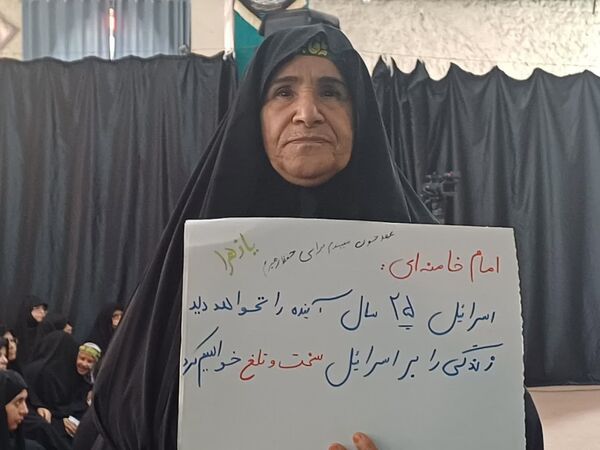 یا زهرا
امام خامنه‌ای:
اسرائیل ۲۵ سال آینده را نخواهد دید
زندگی را بر اسرائیل سخت و تلخ خواهیم کرد